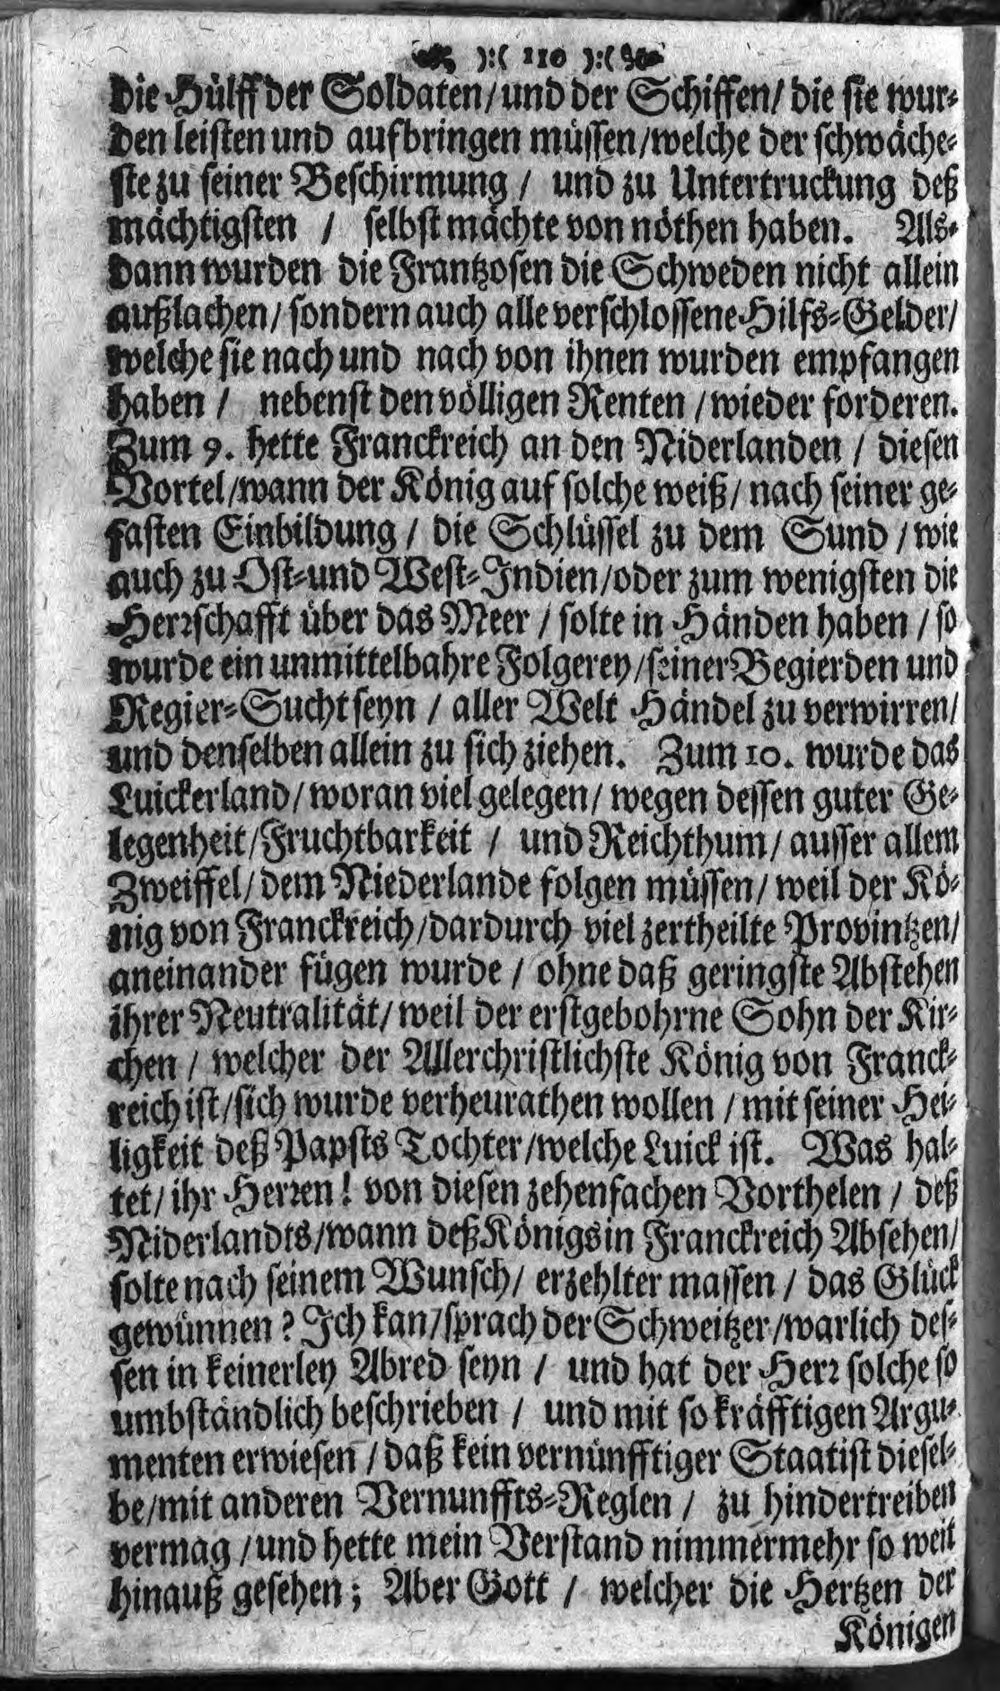 ):( 110 ):(
die Hülff der Soldaten/ und der Schiffen/ die sie wur-
den leisten und aufbringen müssen/ welche der schwäche-
ste zu seiner Beschirmung / und zu Untertruckung deß
mächtigsten / selbst mächte von nöthen haben. Als-
dann wurden die Frantzosen die Schweden nicht allein
außlachen/ sondern auch alle verschlossene Hilfs-Gelder/
welche sie nach und nach von ihnen wurden empfangen
haben / nebenst den völligen Renten / wieder forderen.
Zum 9. hette Franckreich an den Niderlanden / diesen
Vortel/ wann der König auf solche weiß/ nach seiner ge-
fasten Einbildung / die Schlüssel zu dem Sund / wie
auch zu Ost- und West-Indien/ oder zum wenigsten die
Herrschafft über das Meer / solte in Händen haben / so
wurde ein unmittelbahre Folgerey/ seiner Begierden und
Regier-Sucht seyn / aller Welt Händel zu verwirren/
und denselben allein zu sich ziehen. Zum 10. wurde das
Luickerland/ woran viel gelegen/ wegen dessen guter Ge-
legenheit/ Fruchtbarkeit / und Reichthum/ ausser allem
Zweiffel/ dem Niederlande folgen müssen/ weil der Kö-
nig von Franckreich/ dardurch viel zertheilte Provintzen/
aneinander fügen wurde / ohne daß geringste Abstehen
ihrer Neutralität/ weil der erstgebohrne Sohn der Kir-
chen / welcher der Allerchristlichste König von Franck-
reich ist/ sich wurde verheurathen wollen / mit seiner Hei-
ligkeit deß Papsts Tochter/ welche Luick ist. Was hal-
tet/ ihr Herren! von diesen zehenfachen Vorthelen / deß
Niderlandts/ wann deß Königs in Franckreich Absehen/
solte nach seinem Wunsch/ erzehlter massen / das Glück
gewünnen? Ich kan/ sprach der Schweitzer/ warlich des-
sen in keinerley Abred seyn / und hat der Herr solche so
umbständlich beschrieben / und mit so kräfftigen Argu-
menten erwiesen / daß kein vernünfftiger Staatist diesel-
be/ mit anderen Vernunffts-Reglen / zu hindertreiben
vermag / und hette mein Verstand nimmermehr so weit
hinauß gesehen; Aber Gott / welcher die Hertzen der
Königen